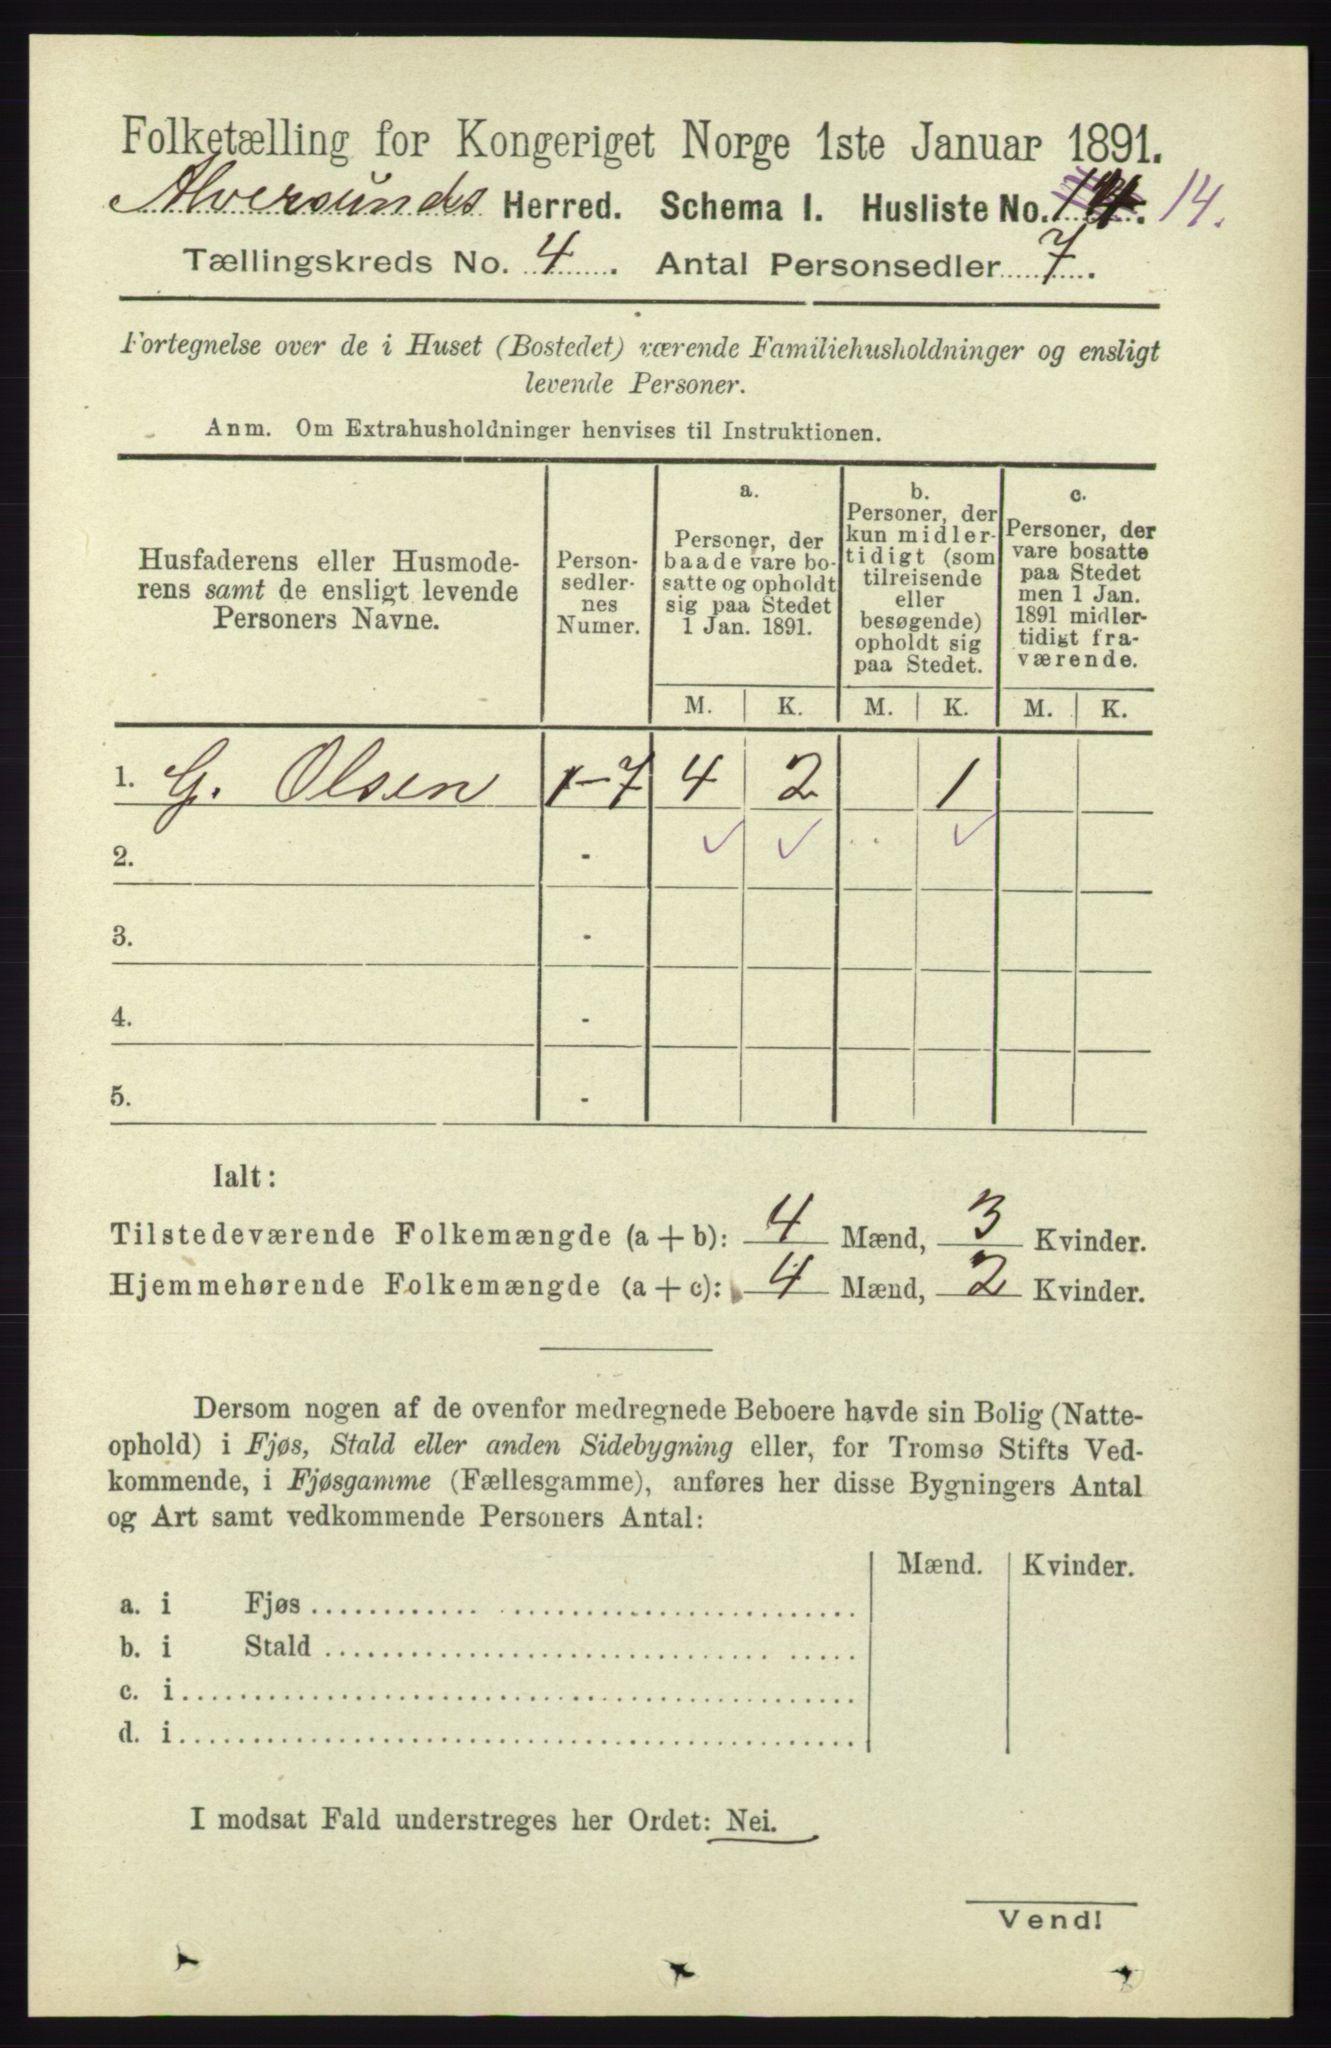 Folketælling for Kongeriget Norge 1ste Januar 1891.
Alversunds Herred. Schema I. Husliste No. 14.
Tællingskreds No. 4. Antal Personsedler 7.
Fortegnelse over de i Huset (Bostedet) værende Familiehusholdninger og ensligt
levende Personer.
Anm. Om Extrahusholdninger henvises til Instruktionen.
Husfaderens eller Husmode-
rens samt de ensligt levende
Personers Navne.
Person-
sedler-
nes
Numer.
a.
Personer, der
baade vare bo-
satte og opholdt
sig paa Stedet
1 Jan. 1891.
b.
Personer, der
kun midler-
tidigt (som
tilreisende
eller
besøgende)
opholdt sig
paa Stedet.
c.
Personer, der
vare bosatte
paa Stedet
men 1 Jan.
1891 midler-
tidigt fra-
værende.
M. K. M. K. M. K.
1. G. Olsen 1-7 4 2 1
2. - ✓ ✓ ✓
3. -
4. -
5. -
Ialt:
Tilstedeværende Folkemængde (a + b): 4 Mænd, 3 Kvinder.
Hjemmehørende Folkemængde (a + c): 4 Mænd, 2 Kvinder.
Dersom nogen af de ovenfor medregnede Beboere havde sin Bolig (Natte-
ophold) i Fjøs, Stald eller anden Sidebygning eller, for Tromsø Stifts Ved-
kommende, i Fjøsgamme (Fællesgamme), anføres her disse Bygningers Antal
og Art samt vedkommende Personers Antal:
Mænd. Kvinder.
a. i Fjøs
b. i Stald
c. i
d. i
I modsat Fald understreges her Ordet: Nei.
Vend!